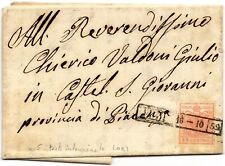 All Reverendissimo
Chierico Valdoni Giulio
in Castel S. Giovanni
provincia di Piacenza
LODI
16-10